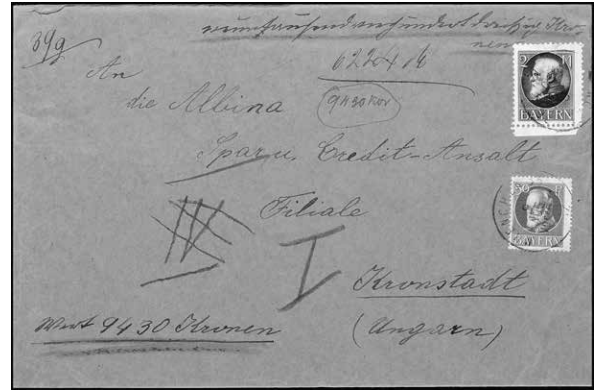 neuntausendvierhundertdreißig Kro-
nen
39g
An
die Albina
9430 Kr
Spar u. Credit-Ansalt
Filiale
I
Kronstadt
(Ungarn)
Wert 9430 Kronen
2 M
BAYERN
BAYERN